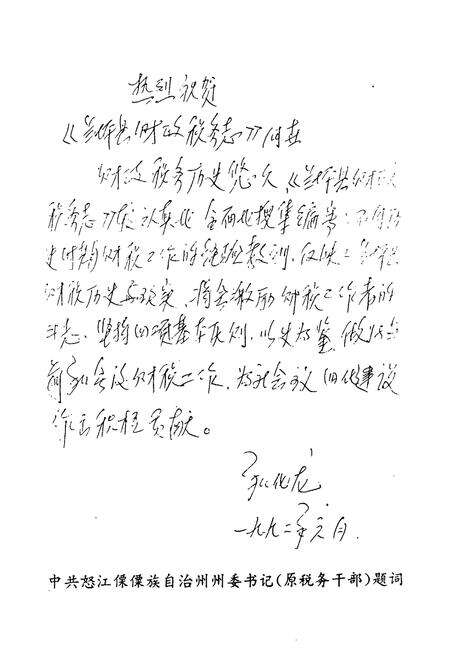 热烈祝贺
《兰坪县财政税务志》问世
财政税务历史悠久,《兰坪县财政
税务志》认真地全面地搜集编纂了不同历
史时期财税工作的经验教训,反映了兰坪县
财税历史与现实,将会激励财税工作者的
斗志,坚持四项基本原则,以史为鉴,做好当
前和今后财税工作,为社会主义四化建设
作出积极贡献。
化龙
一九九二年元月
中共怒江傈僳族自治州州委书记(原税务干部)题词